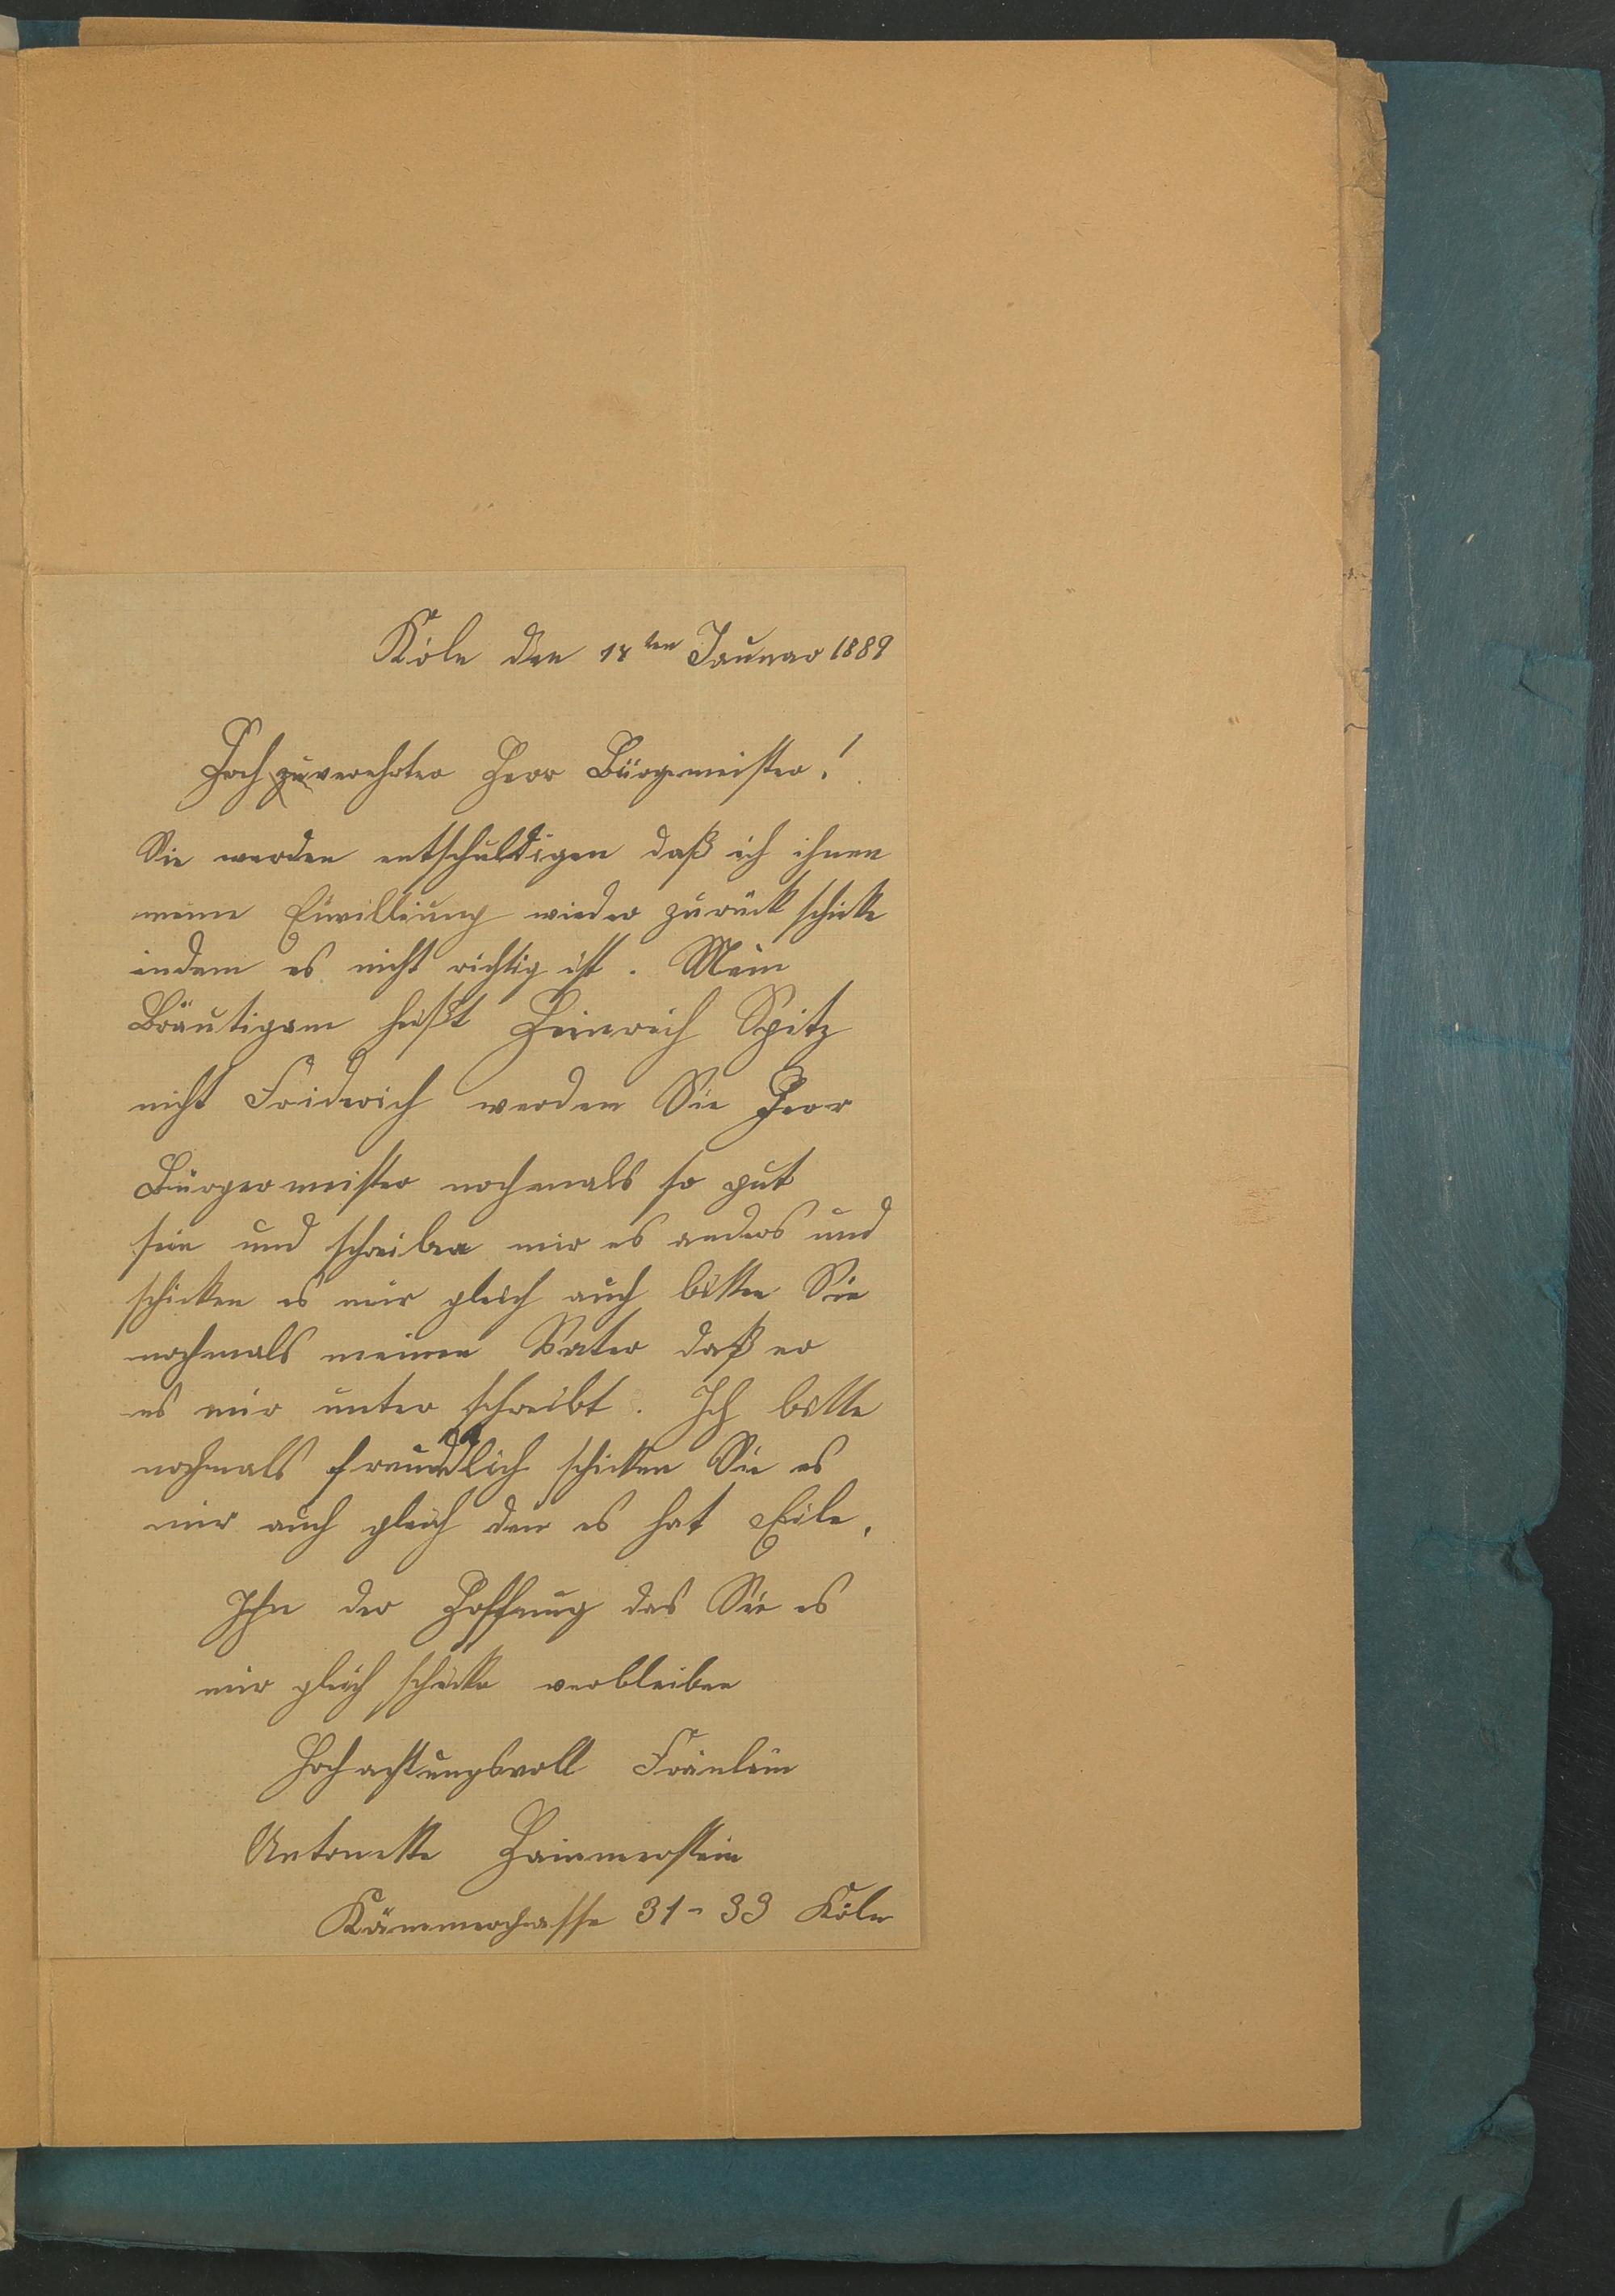 Köln den 18ten Jaunar 1889
Hoch zuverehrter Herr Bürgemeister!
Sie werden entschuldigen daß ich ihnen
meine Einwilliung wieder zurück schicke
indem es nicht richtig ist. Mein
Bräutigam heißt Heinreich Spitz
nicht Fridrich werden Sie Herr
Bürgermeister nochmals so gut
sein und schreiben mir es anders und
schicken es mir gleich auch bitten Sie
nochmals meinen Vater daß er
es mir unter schreibt. Ich bitte
nochmals freundlich schicken Sie es
mir auch gleich den es hat Eile.
Ihn der Hoffnung das Sie es
mir gleich schicke verbleiben
Hochachtungsvoll Fräulein
Antonette Hammerstein
Kämmergasse 31-33 Köln